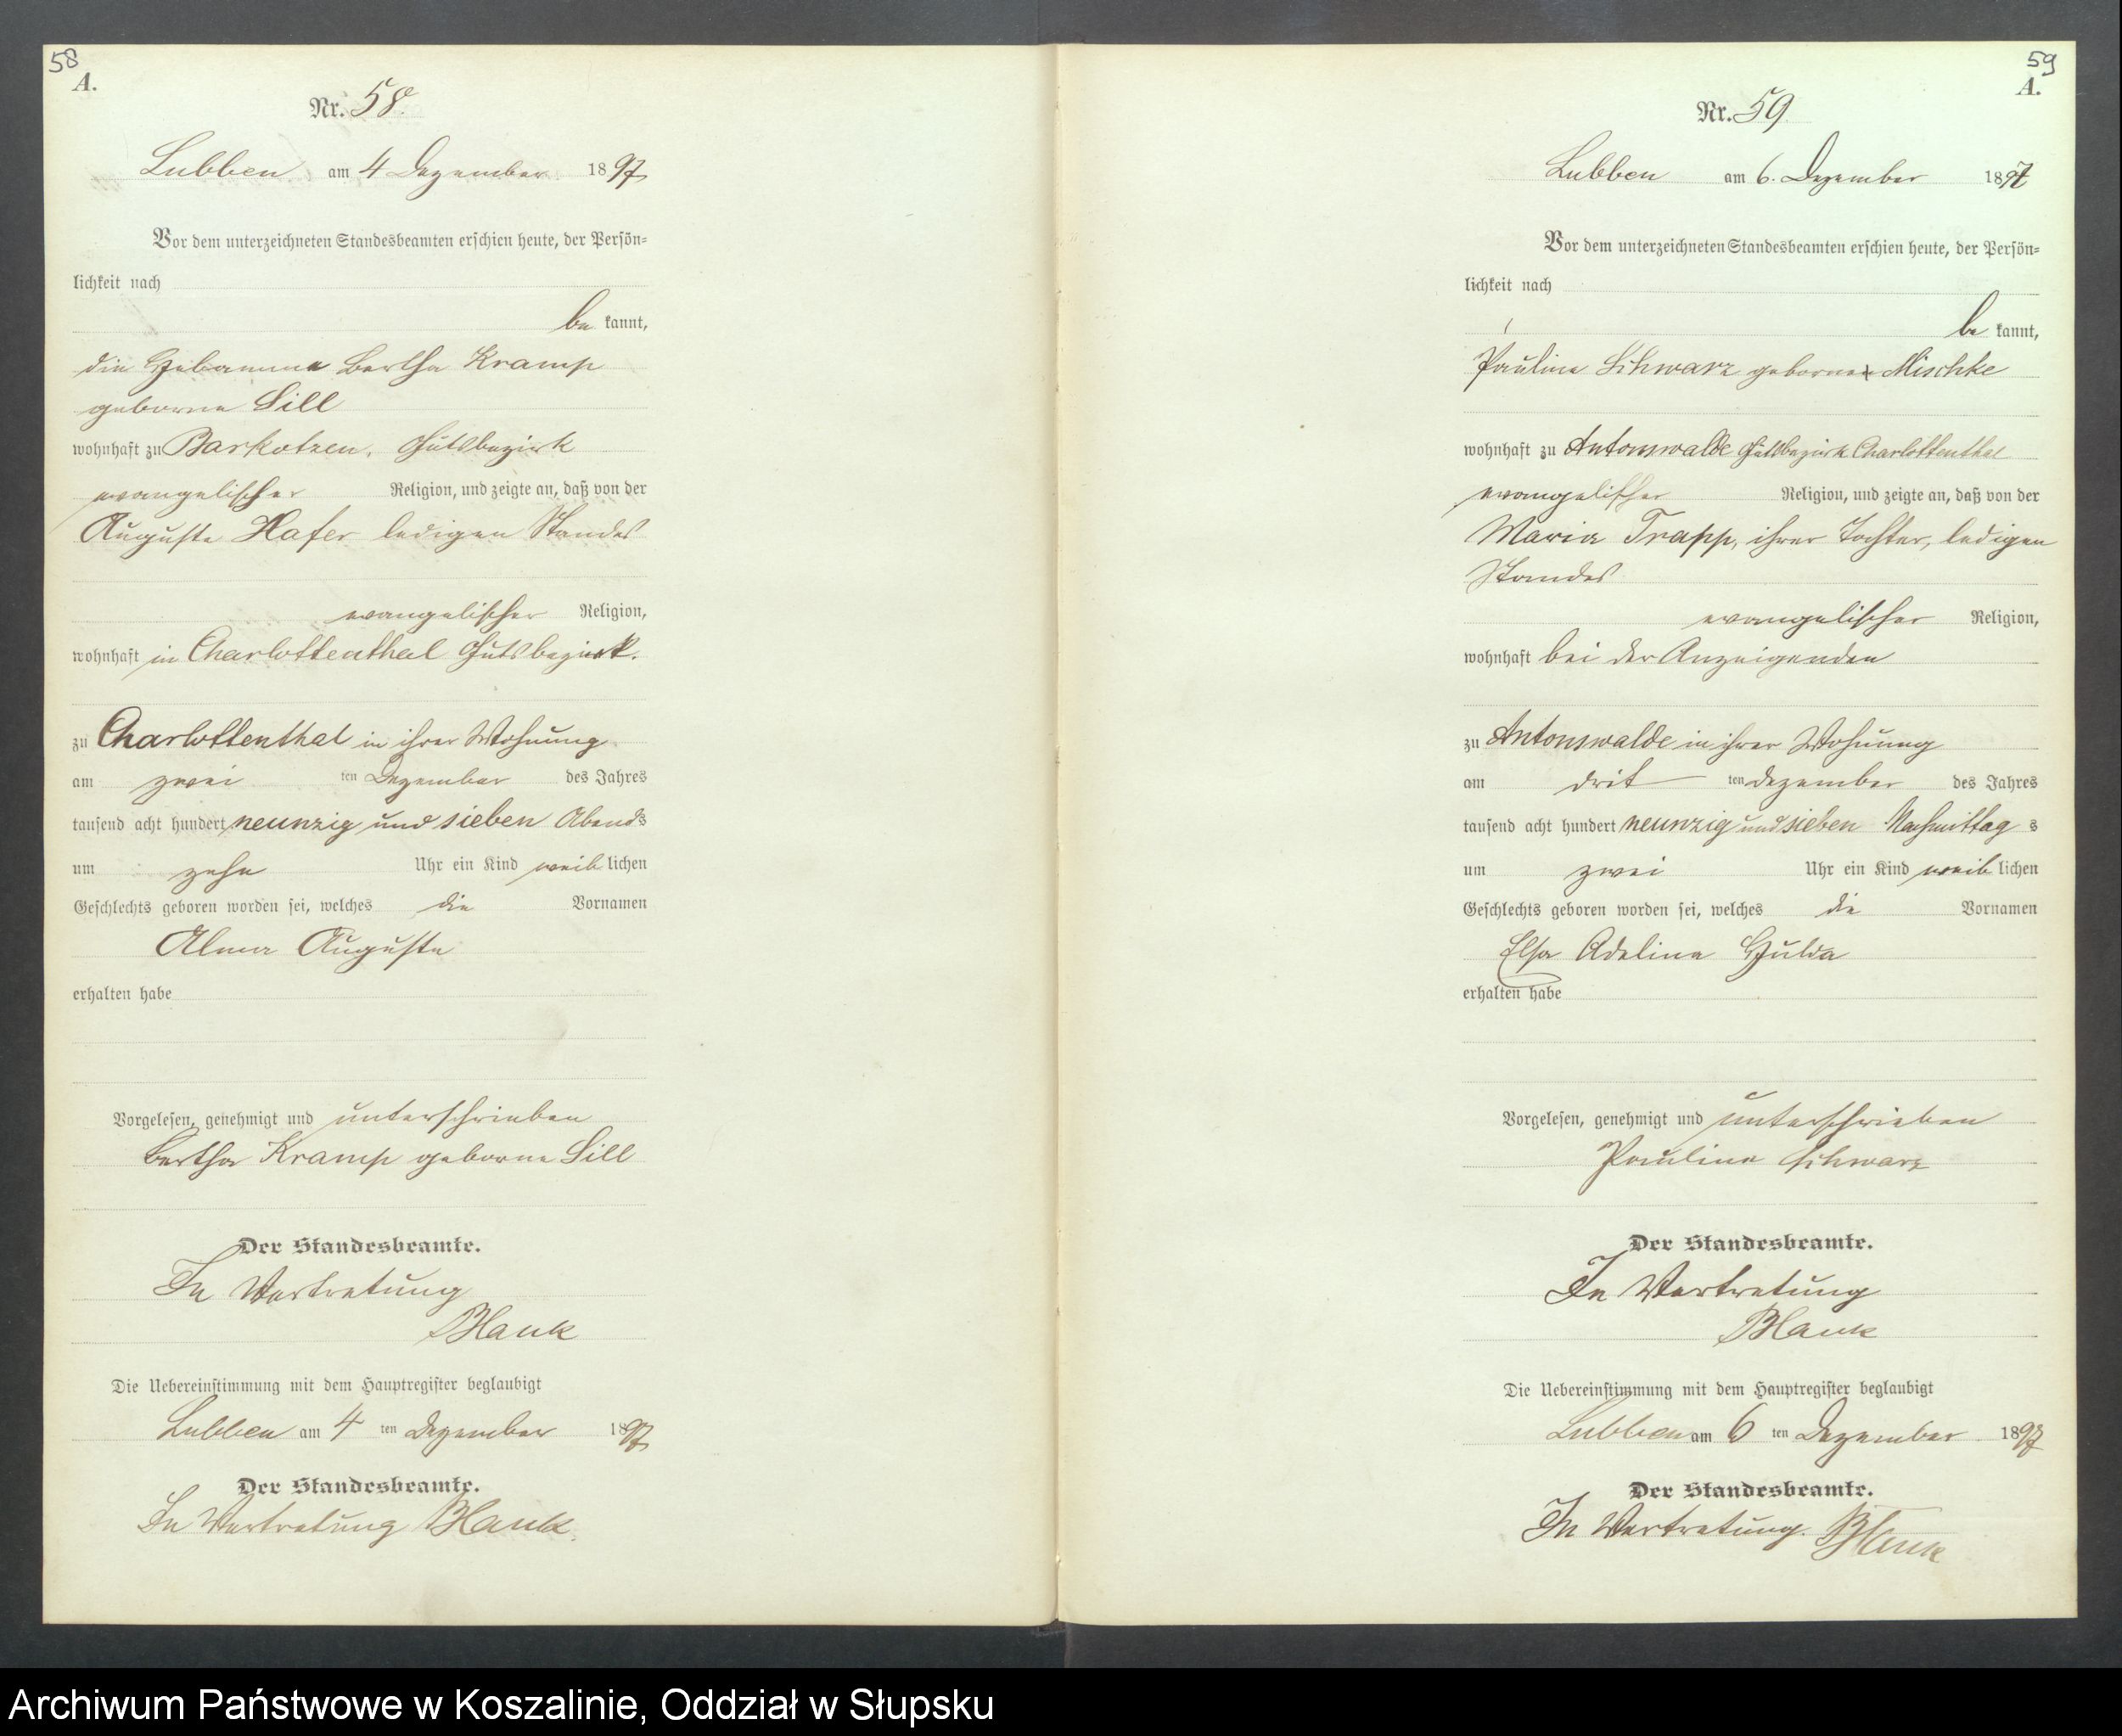 58
A.
Nr. 58.
Lubben am 4 Dezember 1897
Vor dem unterzeichneten Standesbeamten erschien heute, der Persön-
lichkeit nach
be kannt,
die Hebamme Bertha Kramp
geborne Sill
wohnhaft zu Barkotzen, Gutsbezirk
evangelischer Religion, und zeigte an, daß von der
Auguste Hafer ledigen Standes
evangelischer Religion,
wohnhaft in Charlottenthal Gutsbezirk.
zu Charlottenthal in ihrer Wohnung
am zwei ten Dezember des Jahres
tausend acht hundert neunzig und sieben Abends
um zehn Uhr ein Kind weib lichen
Geschlechts geboren worden sei, welches die Vornamen
Alma Auguste
erhalten habe
Vorgelesen, genehmigt und unterschrieben
Bertha Kramp geborne Sill
Der Standesbeamte.
In Vertretung
Blank
Die Uebereinstimmung mit dem Hauptregister beglaubigt
Lubben am 4 ten Dezember 1897
Der Standesbeamte.
In Vertretung Blank.
59
A.
Nr. 59
Lubben am 6. Dezember 1897
Vor dem unterzeichneten Standesbeamten erschien heute, der Persön-
lichkeit nach
be kannt,
Pauline Schwarz geborne Mischke
wohnhaft zu Antonswalde Gutsbezirk Charlottenthal
evangelischer Religion, und zeigte an, daß von der
Maria Trapp, ihrer Tochter, ledigen
Standes
evangelischer Religion,
wohnhaft bei der Anzeigenden
zu Antonswalde in ihrer Wohnung
am drit ten Dezember des Jahres
tausend acht hundert neunzig und sieben Nachmittag s
um zwei Uhr ein Kind weib lichen
Geschlechts geboren worden sei, welches die Vornamen
Elsa Adeline Hulda
erhalten habe
Vorgelesen, genehmigt und unterschrieben
Pauline Schwarz
Der Standesbeamte.
In Vertretung
Blank
Die Uebereinstimmung mit dem Hauptregister beglaubigt
Lubben am 6 ten Dezember 1897
Der Standesbeamte.
In Vertretung. Blank
Archiwum Państwowe w Koszalinie, Oddział w Słupsku